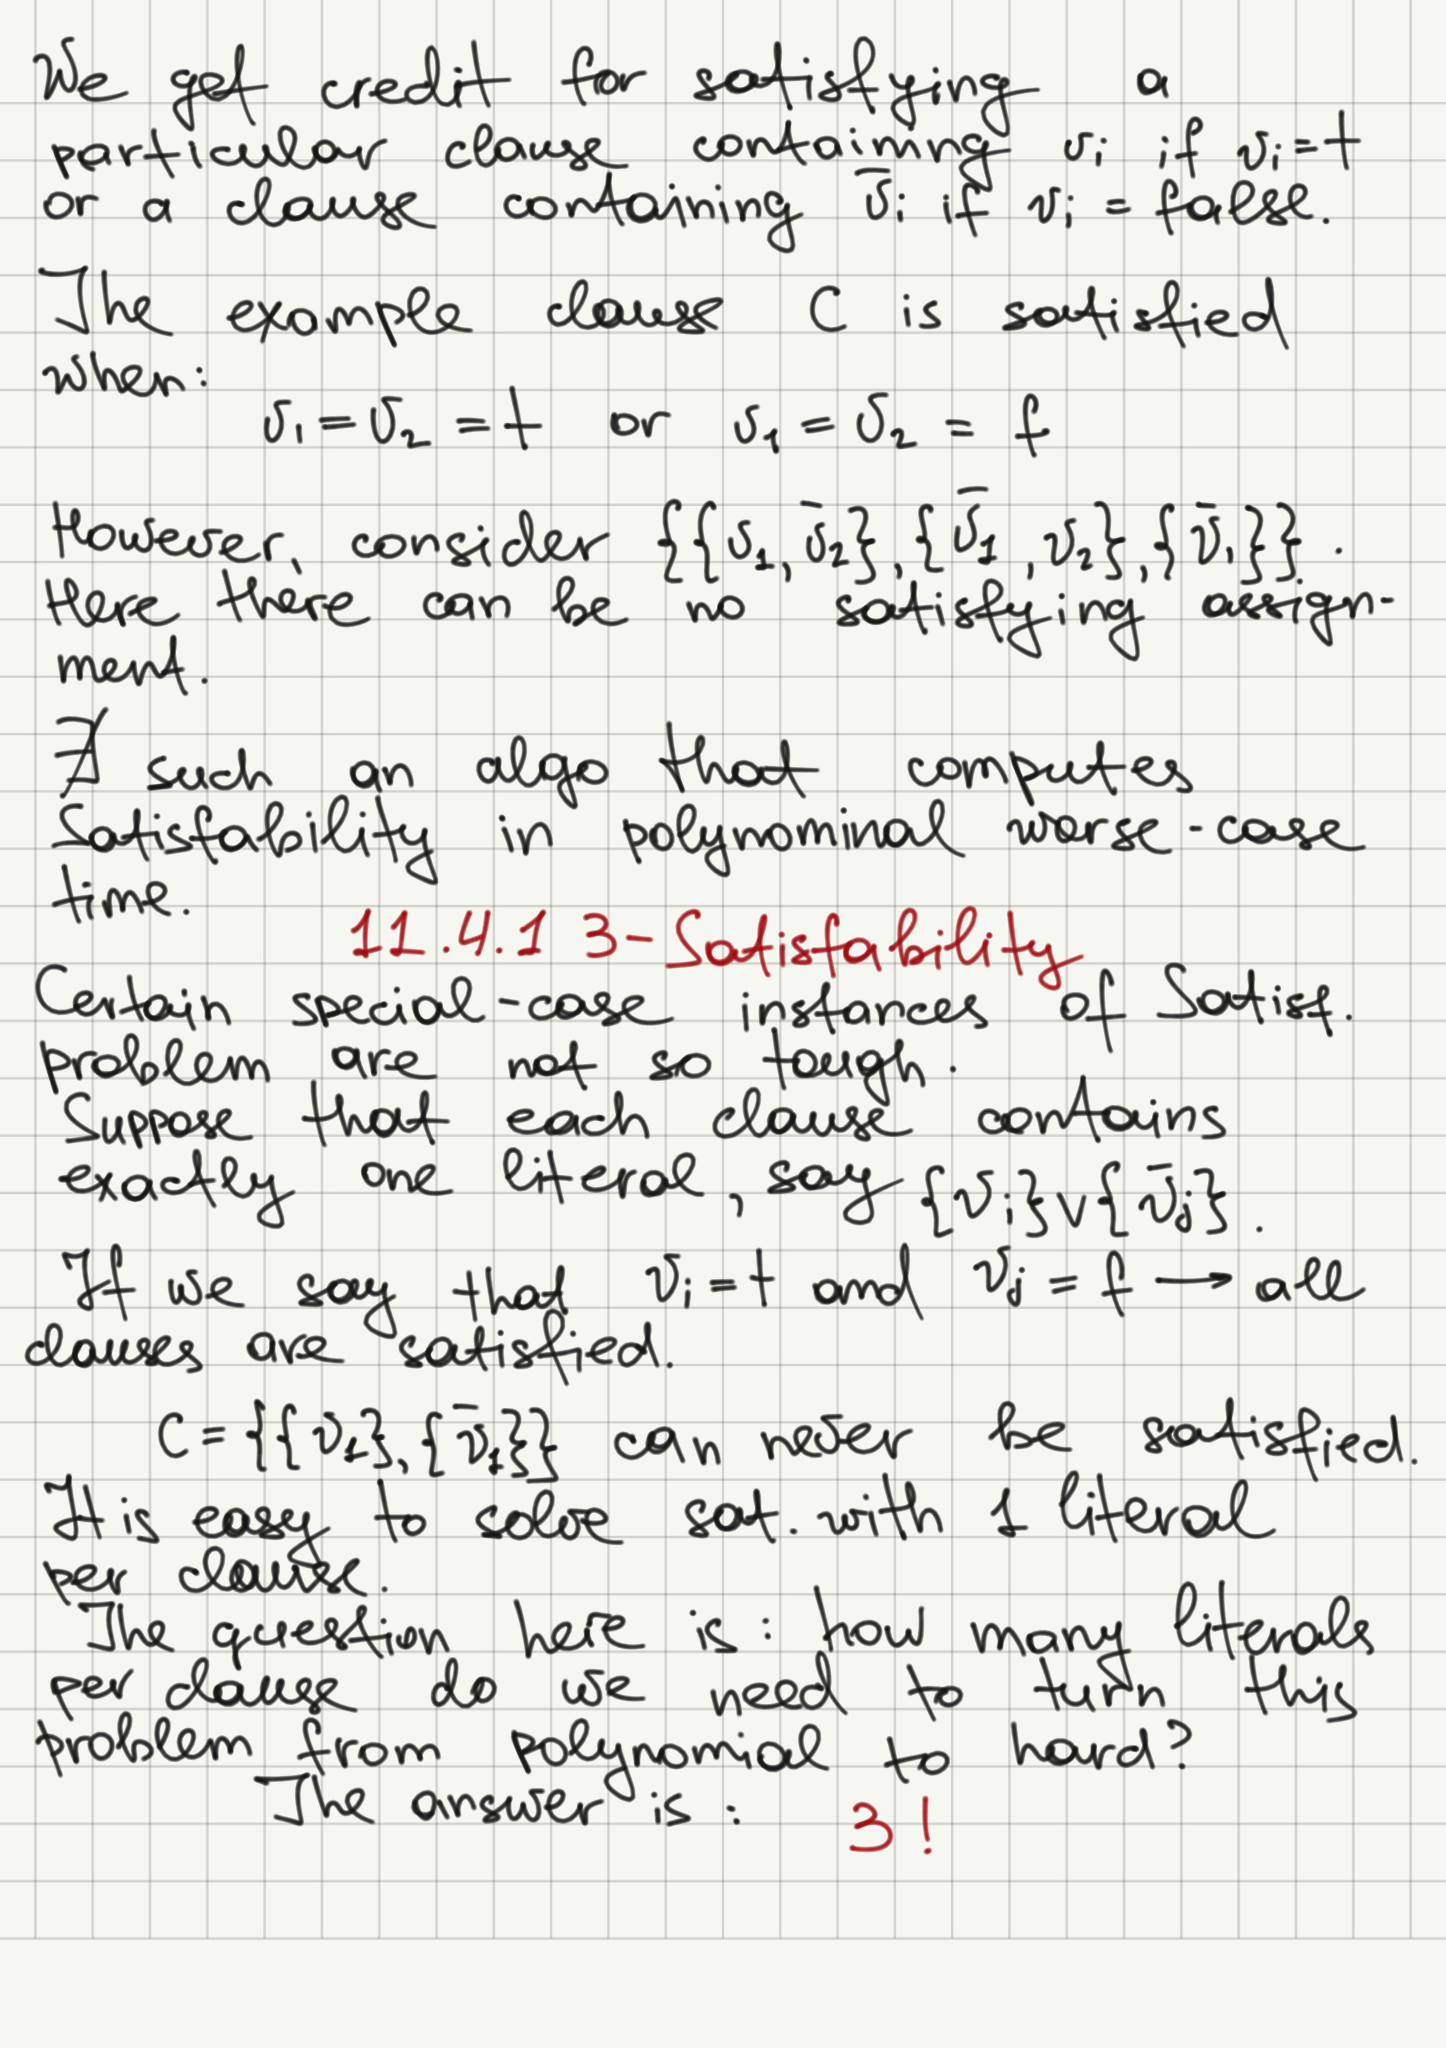 We get credit for satisfying a
particular clause containing v̄i if vi = t
or a clause containing v̄i if vi = false.
The example clause C is satisfied
when:
v1 = v2 = t or v1 = v2 = f
However, consider {{v1, v̄2}, {v̄1, v2}, {v̄1}}.
Here there can be no satisfying assign-
ment.
∄ such an algo that computes
Satisfability in polynominal worse-case
time.
11.4.1 3-Satisfability
Certain special-case instances of Satisf.
problem are not so tough.
Suppose that each clause contains
exactly one literal, say {vi} ∨ {v̄j}.
If we say that vi = t and vj = f → all
clauses are satisfied.
C = {{v1}, {v̄1}} can never be satisfied.
It is easy to solve sat. with 1 literal
per clause.
The question here is: how many literals
per clause do we need to turn this
problem from polynomial to hard?
The answer is: 3!